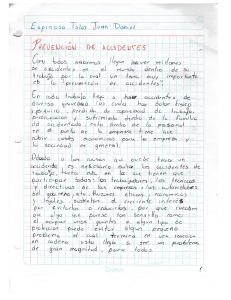 Espinosa Tolas Juan Daniel
PREVENCIÓN DE ACCIDENTES
Cada años llegan haber millones
de accidentes en el mundo dentro de su
trabajo por lo cual un tema muy importante
es la "prevención de accidentes".
En cada trabajo llega a haber accidentes de
diversa gravedad los cuales hay dolor físico
y psíquico, perdida de capacidad de trabajo,
preocupación y sufrimiento dentro de la familia
del accidentado, esto dentro de la persona
en el punto de la empresa tiene que
cubrir costos económicos para la empresa y
la sociedad en general.
Debido a las causas que puede traer un
accidente es necesario evitar los accidentes de
trabajo, tarea más en la que tienen que
participar todos: los trabajadores, los técnicos
y directivos de las empresas, las autoridades
del gobierno, etc. Razones éticas, económicas
y legales sustentan el creciente interés
por evitarlos o reducirlos, por que
algo que parece tan sencillo como
el ocupar unos guantes o algún tipo de
protección puede evitar algún pequeño
problema el cual termina en una reacción
en cadena esto llega a ser un problema
de gran magnitud para todos.
1